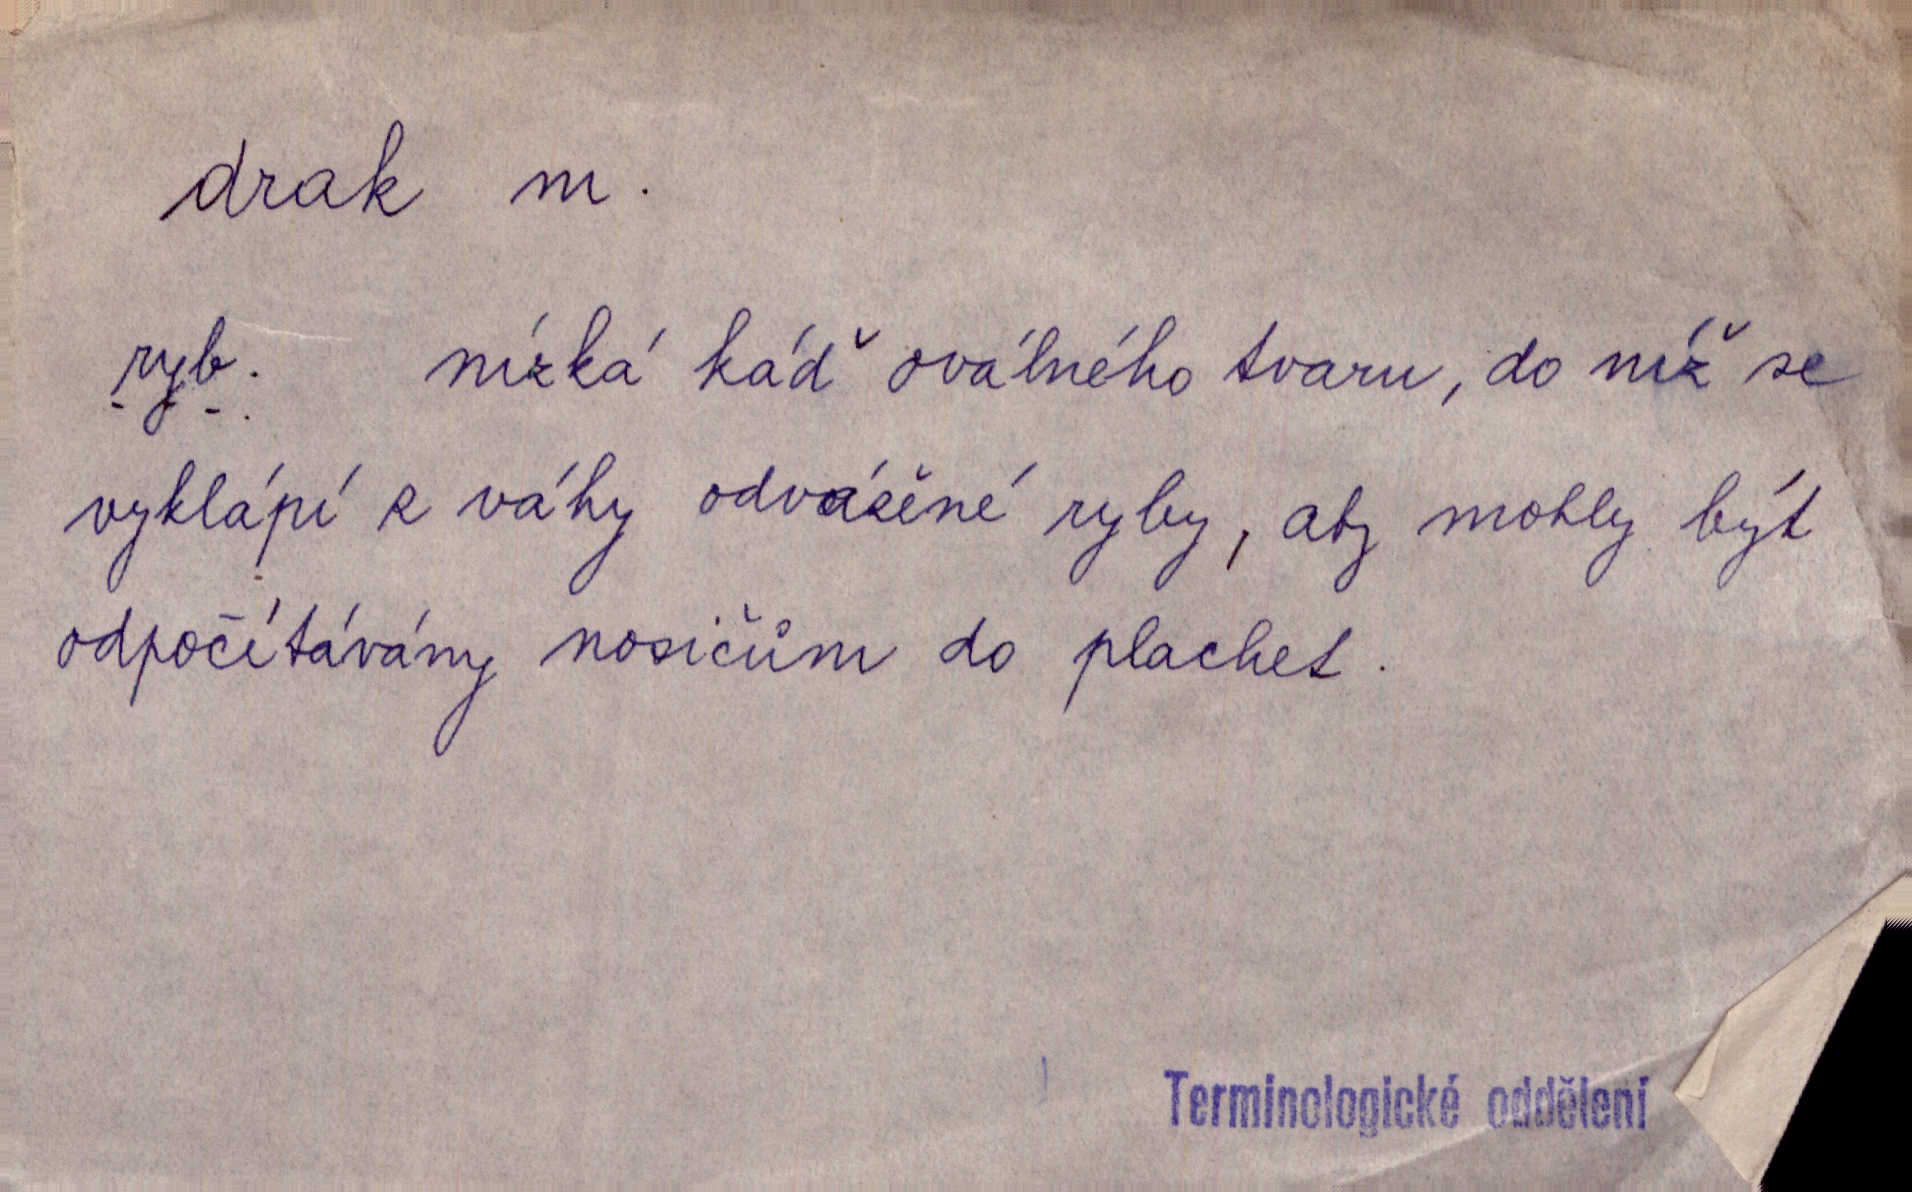 drak m.
ryb. nízká káď oválného tvaru, do níž se
vyklápí z váhy odvážené ryby, aby mohly být
odpočítávány nosičům do plachet.
Terminologické oddělení